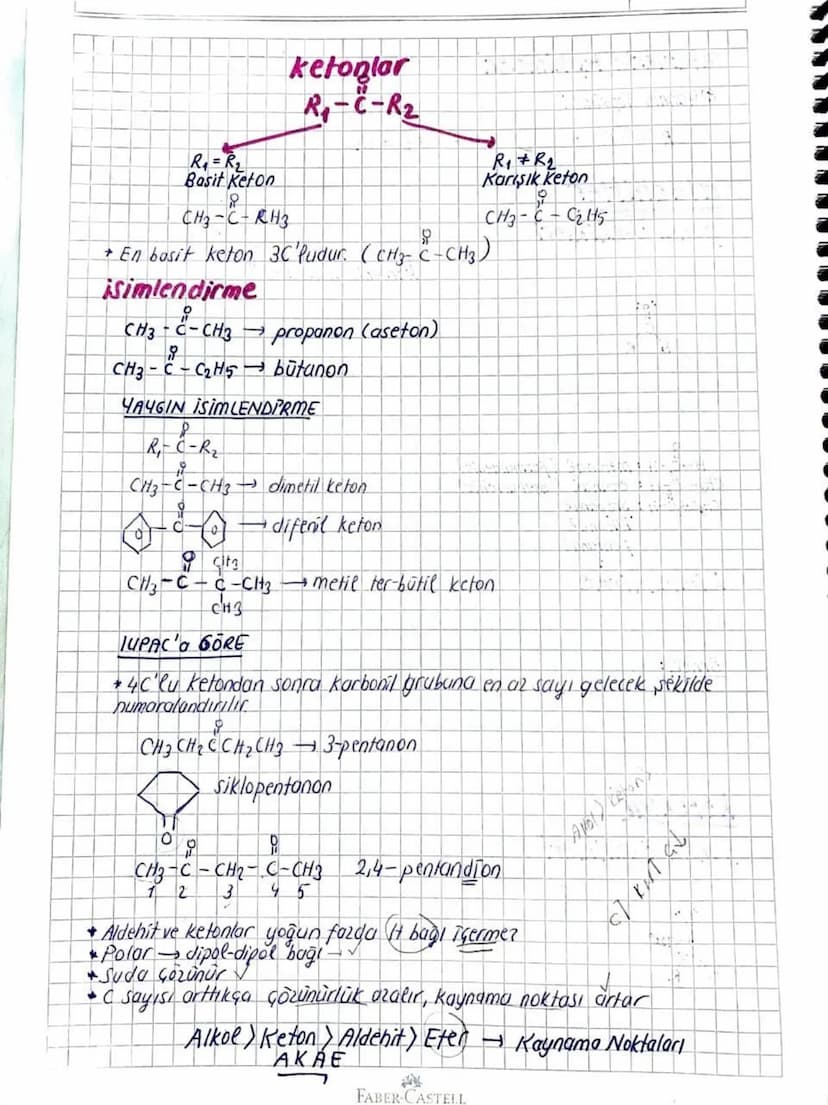 Ketonlar
O
R₁-C-R₂
R₁=R₂ R₁≠R₂
Basit Keton Karışık Keton
O O
CH₃-C-CH₃ CH₃-C-C₂H₅
* En basit keton 3C'ludur. (CH₃-C-CH₃)
O
isimlendirme
O
CH₃-C-CH₃ → propanon (aseton)
O
CH₃-C-C₂H₅ → bütanon
YAYGIN İSİMLENDİRME
O
R₁-C-R₂
O
CH₃-C-CH₃ → dimetil keton
O
C → difenil keton
O CH₃
CH₃-C-C-CH₃ → metil ter-bütil keton
CH₃
IUPAC'a GÖRE
* 4C'lu ketondan sonra karbonil grubuna en az sayı gelecek şekilde
numaralandırılır.
O
CH₃CH₂CCH₂CH₃ → 3-pentanon
siklopentanon
O
O O
CH₃-C-CH₂-C-CH₃ 2,4-pentandion
1 2 3 4 5
* Aldehit ve ketonlar yoğun fazda H bağı içermez
* Polar → dipol-dipol bağı → ✓
* Suda çözünür ✓
* C sayısı arttıkça çözünürlük azalır, kaynama noktası artar
Alkol > Keton > Aldehit > Eter → Kaynama Noktaları
AKAE
FABER-CASTELL